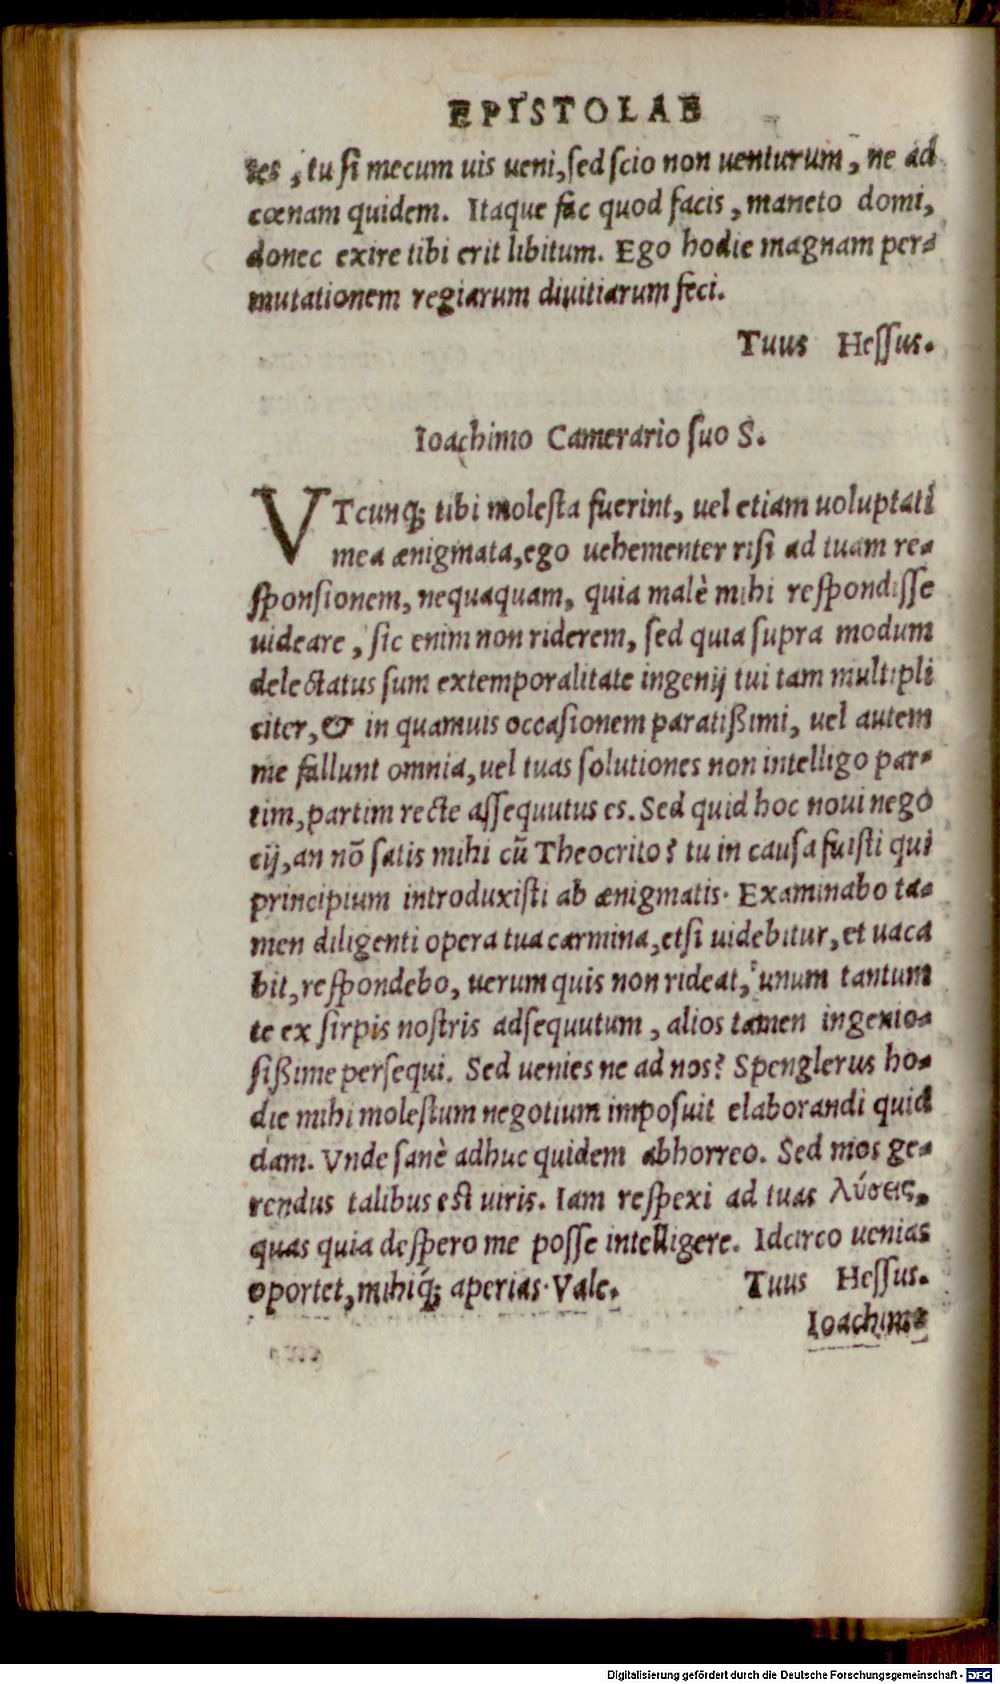 EPISTOLAE
tes, tu si mecum uis ueni, sed scio non uenturum, ne ad
cœnam quidem. Itaque fac quod facis, maneto domi,
donec exire tibi erit libitum. Ego hodie magnam per-
mutationem regiarum diuitiarum feci.
Tuus Hessus.
Ioachimo Camerario suo S.
VTcunq; tibi molesta fuerint, uel etiam uoluptati
mea ænigmata, ego uehementer risi ad tuam re-
sponsionem, nequaquam, quia malè mihi respondisse
uideare, sic enim non riderem, sed quia supra modum
delectatus sum extemporalitate ingenij tui tam multipli
citer, & in quamuis occasionem paratißimi, uel autem
me fallunt omnia, uel tuas solutiones non intelligo par-
tim, partim recte assequutus es. Sed quid hoc noui nego
cij, an nō satis mihi cū Theocrito? tu in causa fuisti qui
principium introduxisti ab ænigmatis. Examinabo ta-
men diligenti opera tua carmina, etsi uidebitur, et uaca
bit, respondebo, uerum quis non rideat, unum tantum
te ex sirpis nostris adsequutum, alios tamen ingenio-
sißime persequi. Sed uenies ne ad nos? Spenglerus ho-
die mihi molestum negotium imposuit elaborandi quid
dam. Vnde sanè adhuc quidem abhorreo. Sed mos ge-
rendus talibus est uiris. Iam respexi ad tuas λύσεις,
quas quia despero me posse intelligere. Idcirco uenias
oportet, mihiq́; aperias. Vale. Tuus Hessus.
Ioachimo
Digitalisierung gefördert durch die Deutsche Forschungsgemeinschaft - DFG